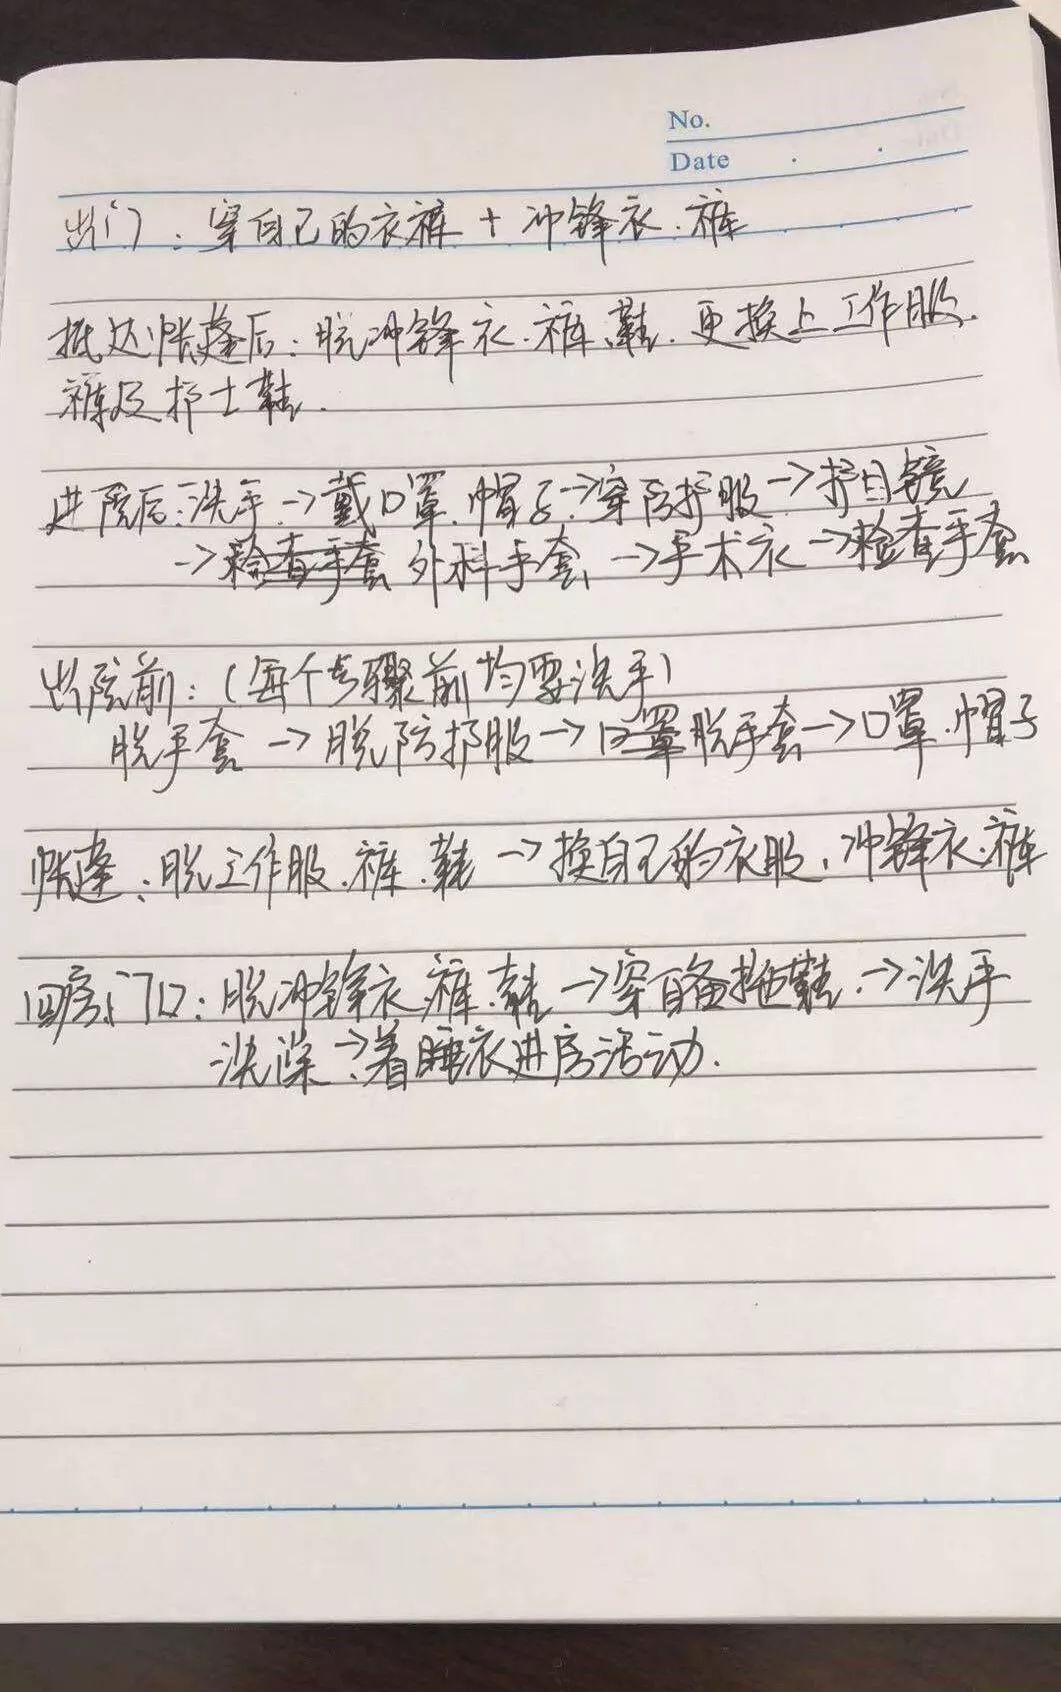 No.
Date
出门：穿自己的衣裤 + 冲锋衣、裤
抵达帐篷后：脱冲锋衣、裤、鞋、更换上工作服、
裤及护士鞋.
进院后：洗手→戴口罩、帽子→穿防护服→护目镜
→检查手套 外科手套→手术衣→检查手套
出院前：（每个步骤前均要洗手）
脱手套→脱防护服→口罩脱手套→口罩、帽子
帐篷：脱工作服、裤、鞋→换自己的衣服、冲锋衣、裤
回房门口：脱冲锋衣、裤、鞋→穿自备拖鞋→洗手
洗澡→着睡衣进房活动.